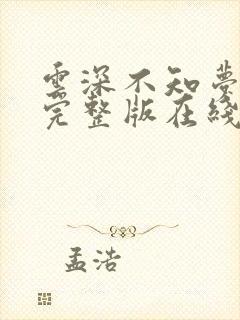 雲深不知夢
完整版在綫
孟浩